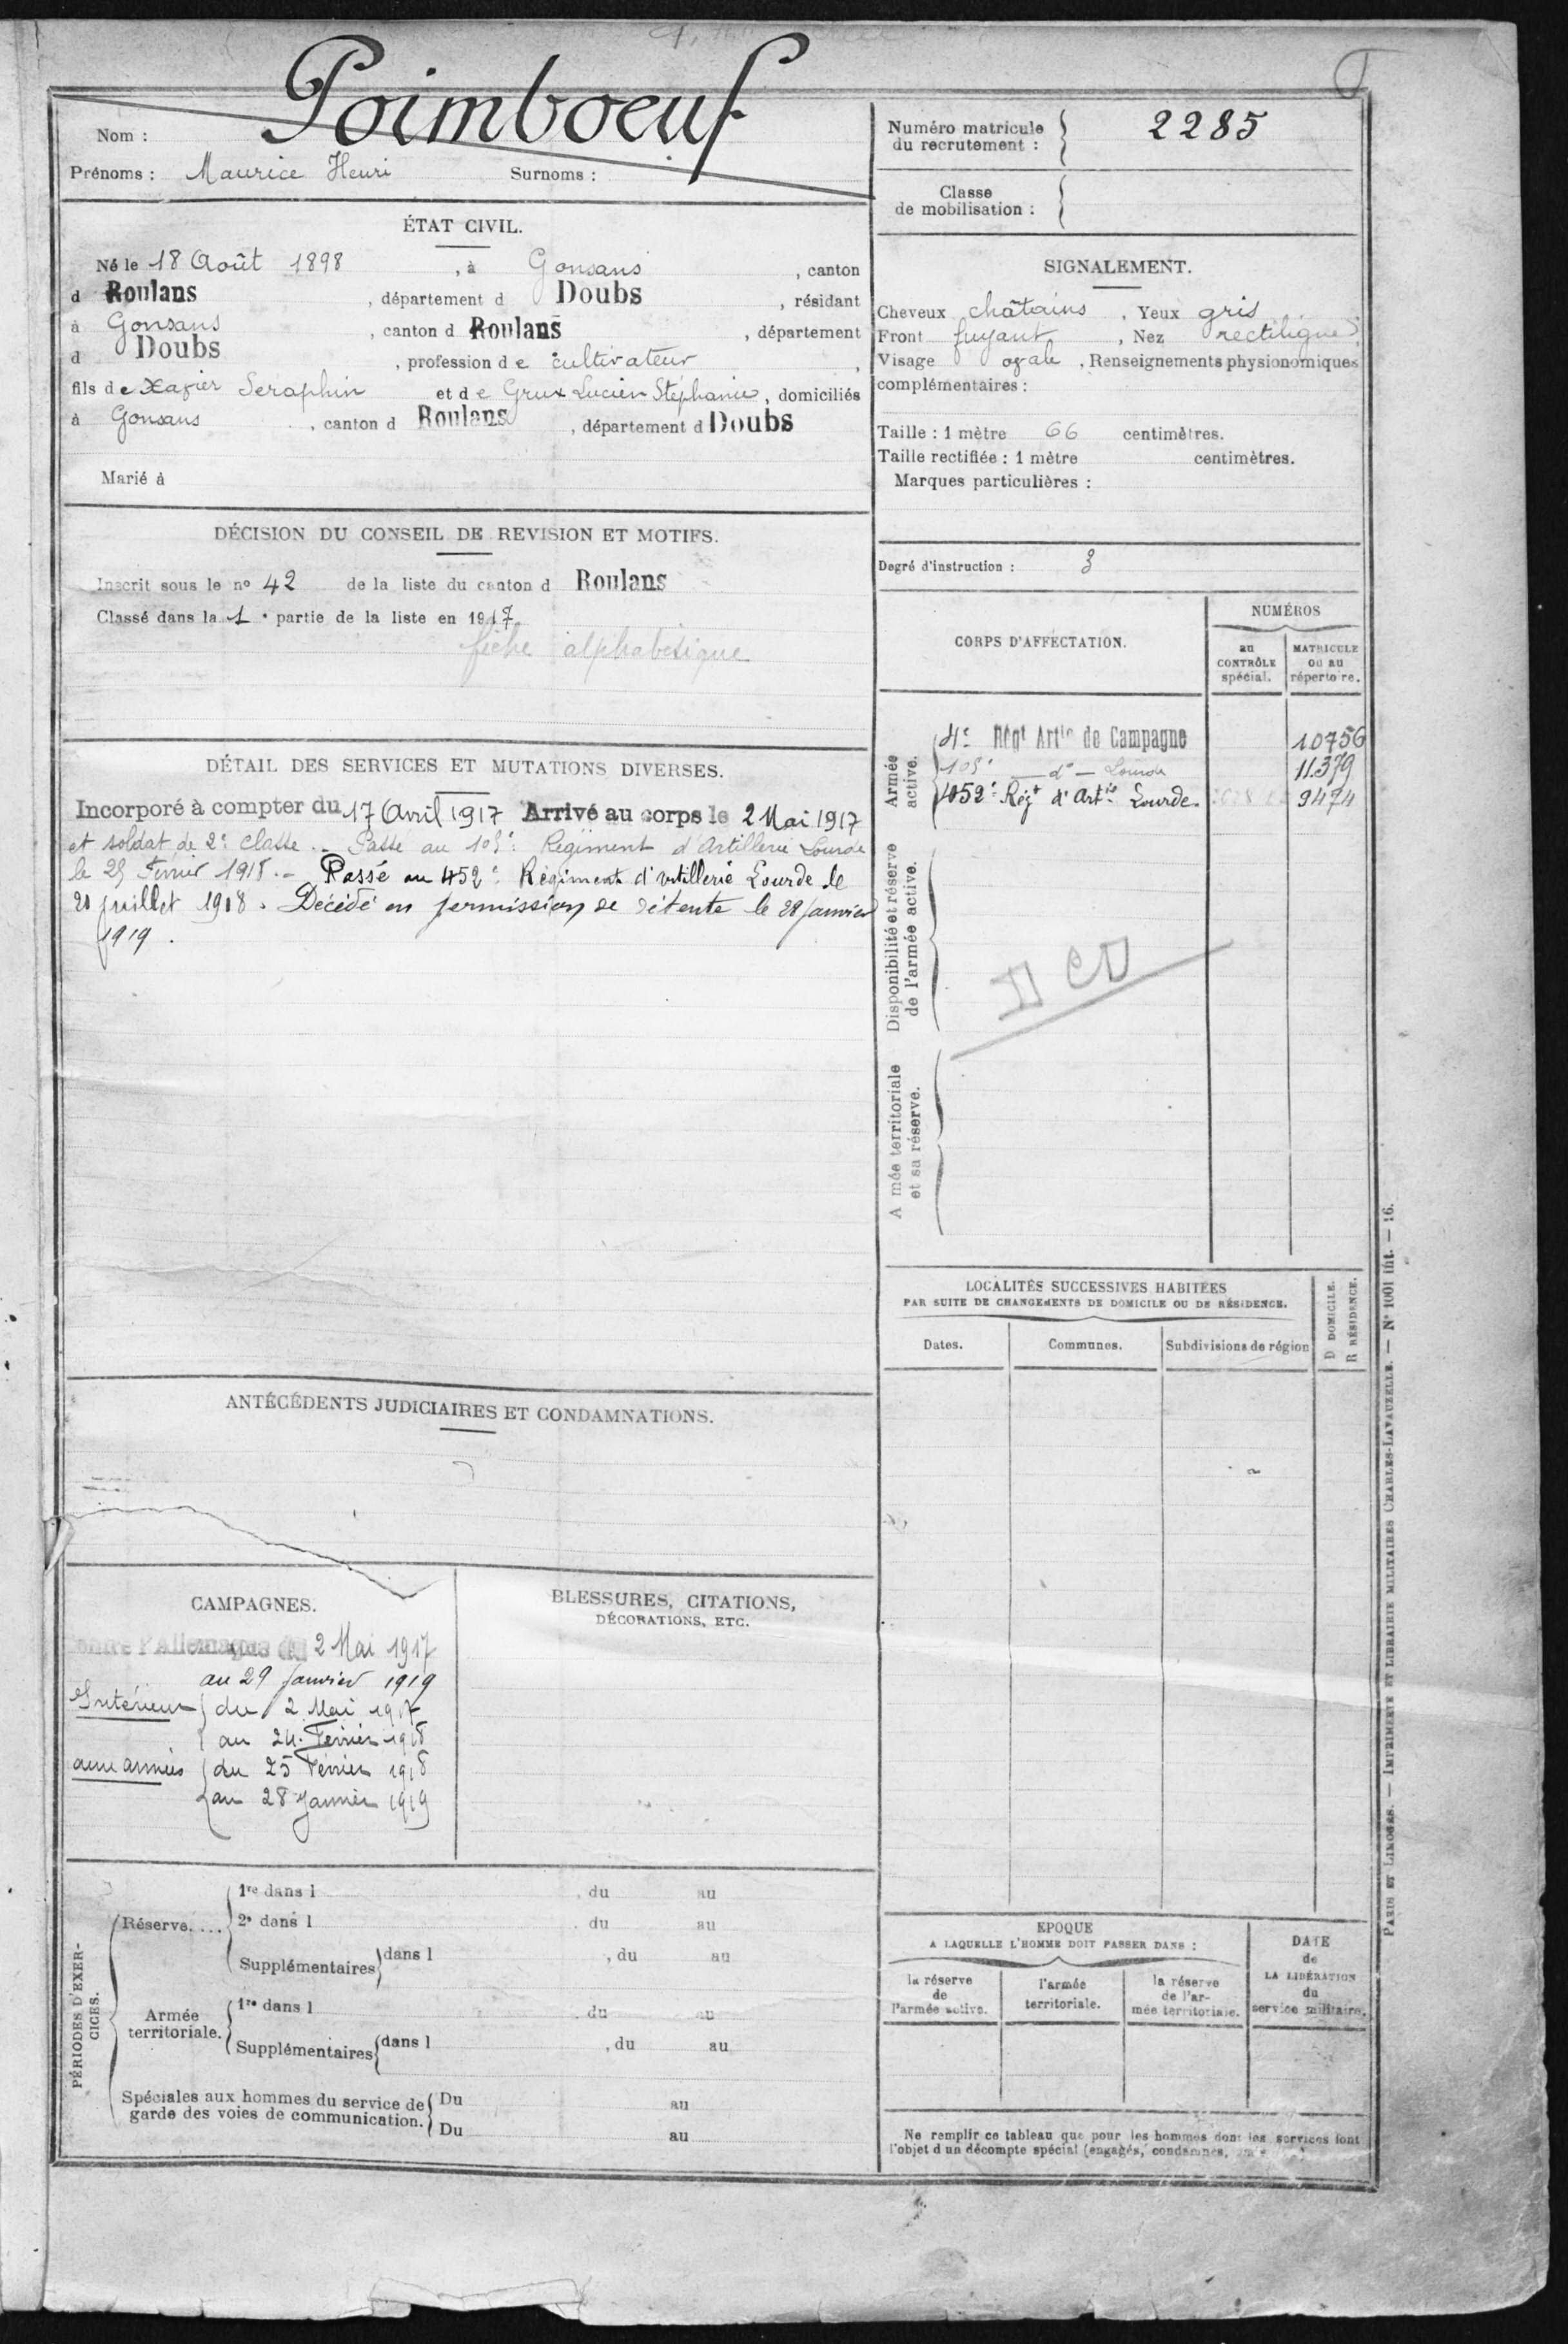 Poimboeuf
Nom :
Prénoms : Maurice Henri Surnoms :
ÉTAT CIVIL.
Né le 18 Août 1898, à Gonsans, canton
d Roulans, département d Doubs, résidant
à Gonsans, canton d Roulans, département
d Doubs, profession de cultivateur,
fils de Xavier Seraphin et de Grux Lucien Stéphanie, domiciliés
à Gonsans, canton d Roulans, département d Doubs
Marié à
DÉCISION DU CONSEIL DE REVISION ET MOTIFS.
Inscrit sous le nº 42 de la liste du canton d Roulans
Classé dans la 1e partie de la liste en 1917
fiche alphabétique
DÉTAIL DES SERVICES ET MUTATIONS DIVERSES.
Incorporé à compter du 17 Avril 1917 Arrivé au corps le 2 Mai 1917
et soldat de 2e classe .- Passé au 105e Régiment d'Artillerie Lourde
le 25 Février 1918 .- Passé au 452e Régiment d'artillerie Lourde le
21 juillet 1918. Décédé en permission de détente le 28 janvier
1919.
ANTÉCÉDENTS JUDICIAIRES ET CONDAMNATIONS.
CAMPAGNES.
Contre l'Allemagne du 2 Mai 1917
au 29 janvier 1919
Intérieur du 2 Mai 1917
au 24 Février 1918
aux armées du 25 Février 1918
au 28 Janvier 1919
BLESSURES, CITATIONS,
DÉCORATIONS, ETC.
PÉRIODES D'EXERCICES.
Réserve....
1re dans l , du au
2e dans l , du au
Supplémentaires dans l , du au
Armée territoriale.
1re dans l , du au
Supplémentaires dans l , du au
Spéciales aux hommes du service de
garde des voies de communication.
Du au
Du au
Numéro matricule
du recrutement : 2285
Classe
de mobilisation :
SIGNALEMENT.
Cheveux châtains, Yeux gris
Front fuyant, Nez rectiligne
Visage ovale, Renseignements physionomiques
complémentaires :
Taille : 1 mètre 66 centimètres.
Taille rectifiée : 1 mètre centimètres.
Marques particulières :
Degré d'instruction : 3
CORPS D'AFFECTATION.
NUMÉROS
au CONTRÔLE spécial.
MATRICULE ou au répertoire.
Armée active.
4e Régt Artie de Campagne 10756
105e — do — Lourde 11379
452e Régt d'Artie Lourde 9474
Disponibilité et réserve de l'armée active.
DCD
Armée territoriale et sa réserve.
LOCALITÉS SUCCESSIVES HABITÉES
PAR SUITE DE CHANGEMENTS DE DOMICILE OU DE RÉSIDENCE.
Dates.
Communes.
Subdivisions de région
D DOMICILE.
R RÉSIDENCE.
EPOQUE
A LAQUELLE L'HOMME DOIT PASSER DANS :
la réserve de l'armée active.
l'armée territoriale.
la réserve de l'armée territoriale.
DATE de LA LIBÉRATION du service militaire.
Ne remplir ce tableau que pour les hommes dont les services font
l'objet d'un décompte spécial (engagés, condamnés,
PARIS ET LIMOGES. — IMPRIMERIE ET LIBRAIRIE MILITAIRES CHARLES-LAVAUZELLE. — Nº 1001 int. — 16.